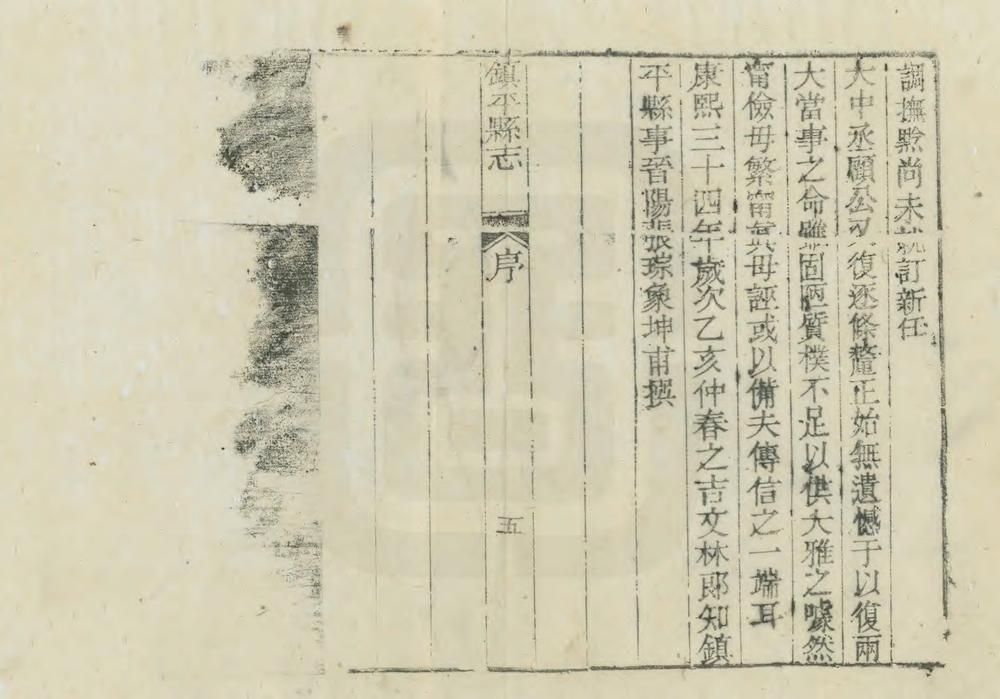 調撫黔尚未就訂新任
大中丞顧公又復逐條釐正始無遺憾于以復兩
大當事之命雖固陋質樸不足以供大雅之噱然
甯儉毋繁甯真毋誣或以備夫傳信之一端耳
康熙三十四年歲次乙亥仲春之吉文林郎知鎮
平縣事晉陽張琮象坤甫撰
鎮平縣志
序
五